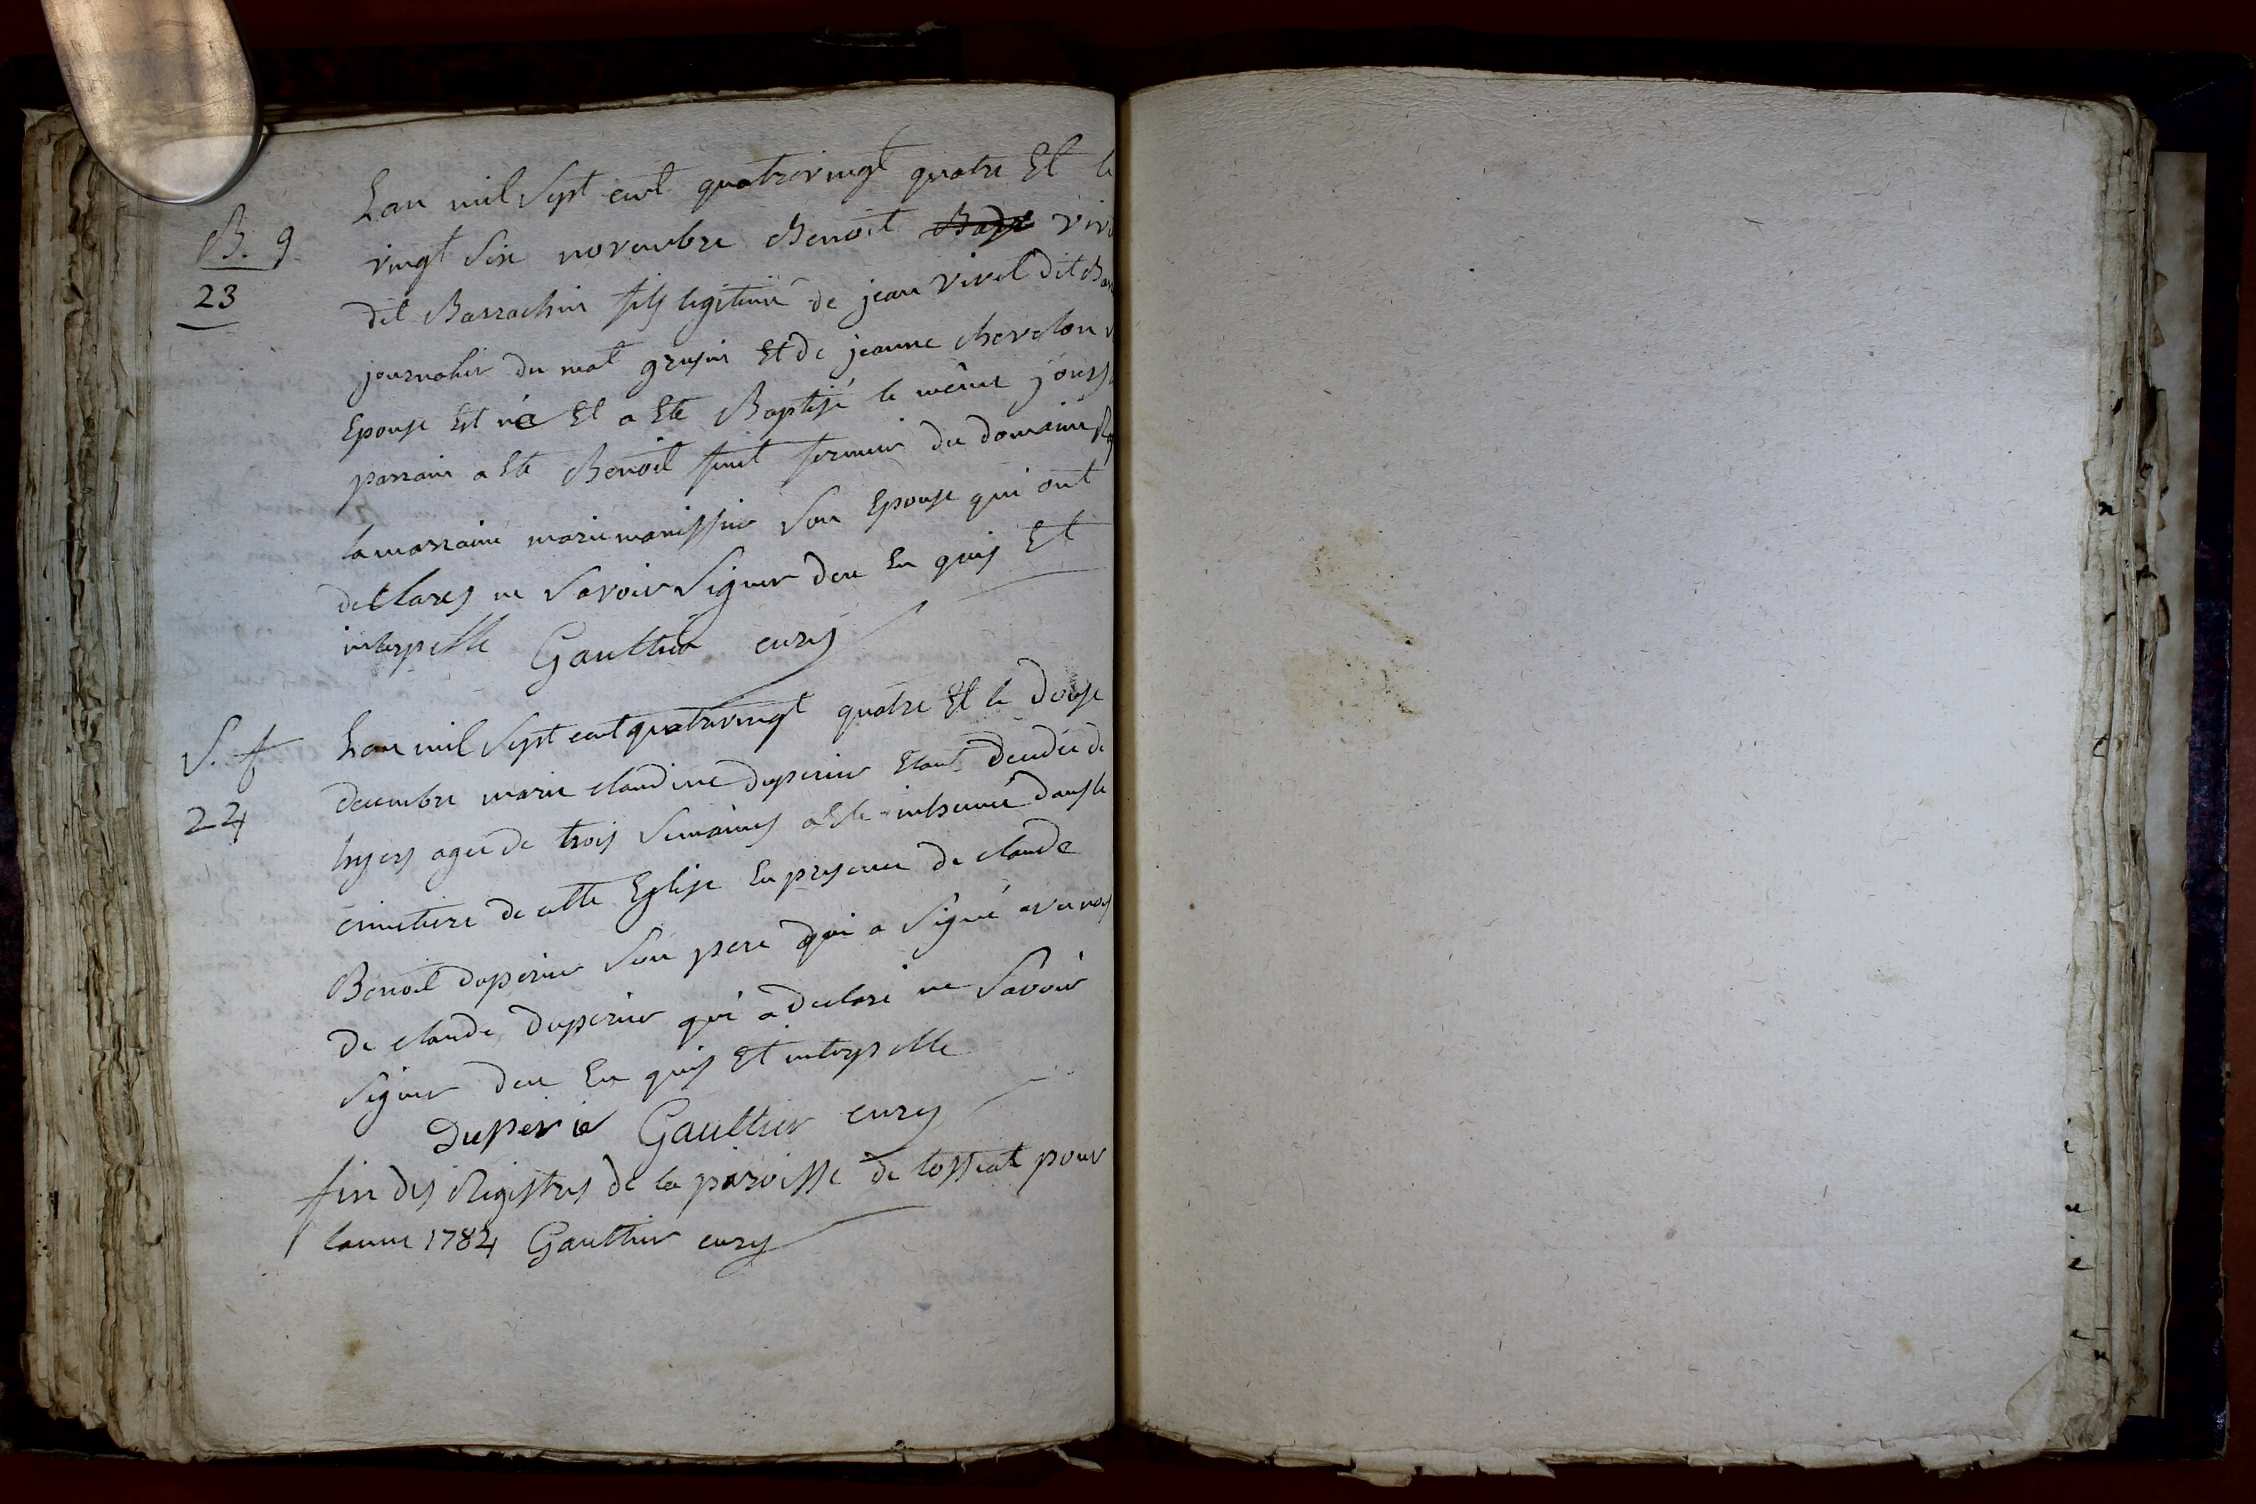 B. g
23
Lan mil Sept cent quatrevingt quatre Et le
vingt Six novembre Benoit
dit Barrachin fils legitime de jean Virel dit
journalier du mat grusin Et de jeanne chevelon
Epouse Est né Et a Ete Baptisé le même jour
parrain a Ete Benoit fermier du domaine
la marraine marie manissier Son Epouse qui ont
declarés ne Savoir Signer dece En quis Et
interpelle Gaulthier curé
S. f
24
Lan mil Sept cent quatrevingt quatre Et le douse
decembre marie claudine duperier Etant decedée de
hyers agee de trois Semaines a Ete inhumé dans le
cimetiere de cette Eglise En presence de claude
Benoit duperier Son pere qui a Signé avec nous
De claude duperier qui a declaré ne Savoir
Signer dece En quis Et interpelle
Duperié Gaulthier curé
fin des Registres de la paroisse de tossiat pour
lanne 1784 Gaulthier curé